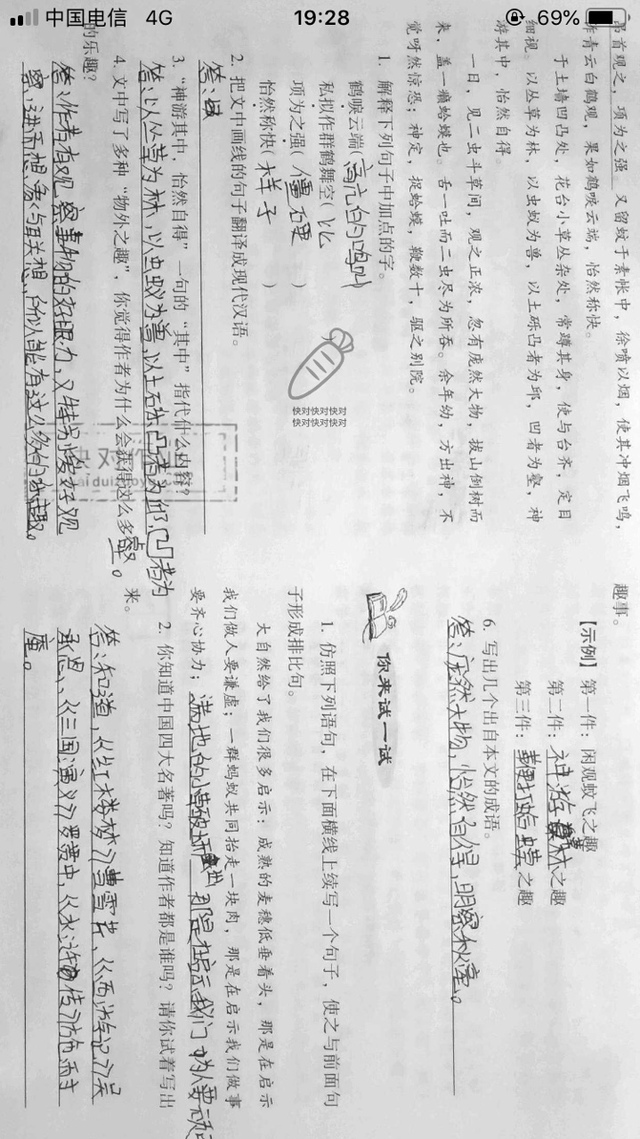 中国电信 4G 19:28 69%
昂首观之,项为之强 又留蚊于素帐中,徐喷以烟,使其冲烟飞鸣,
作青云白鹤观,果如鹤唳云端,怡然称快。
于土墙凹凸处,花台小草丛杂处,常蹲其身,使与台齐,定目
细视。以丛草为林,以虫蚁为兽,以土砾凸者为邱,凹者为壑,神
游其中,怡然自得。
一日,见二虫斗草间,观之正浓,忽有庞然大物,拔山倒树而
来,盖一癞蛤蟆也。舌一吐而二虫尽为所吞。余年幼,方出神,不
觉呀然惊恐;神定,捉蛤蟆,鞭数十,驱之别院。
1. 解释下列句子中加点的字。
鹤唳云端(高亢的鸣叫
私拟作群鹤舞空(比
项为之强(僵硬 )
怡然称快(样子 )
2. 把文中画线的句子翻译成现代汉语。
答:
3. “神游其中,怡然自得”一句的“其中”指代什么内容?
答:以丛草为林,以虫蚁为兽,以土砾凸者为邱,凹者为
壑。
4. 文中写了多种“物外之趣”,你觉得作者为什么会获得这么多
的乐趣?
答:作者有观察事物的好眼力,又特别爱好观
察,进而想象与联想,所以就有这么多的乐趣。
快对快对快对
快对快对快对
趣事。
【示例】第一件:闲观蚊飞之趣
第二件:神游 林之趣
第三件:鞭打蛤蟆之趣
6. 写出几个出自本文的成语。
答:庞然大物,怡然自得,明察秋毫。
你来试一试
1. 仿照下列语句,在下面横线上续写一个句子,使之与前面句
子形成排比句。
大自然给了我们很多启示:成熟的麦穗低垂着头,那是在启示
我们做人要谦虚;一群蚂蚁共同抬走一块肉,那是在启示我们做事
要齐心协力;满地的小草破土 那是在启示我们 做人要
2. 你知道中国四大名著吗?知道作者都是谁吗?请你试着写出
来。
答:知道,《红楼梦》曹雪芹,《西游记》吴
承恩,《三国演义》罗贯中,《水浒传》施耐
庵。